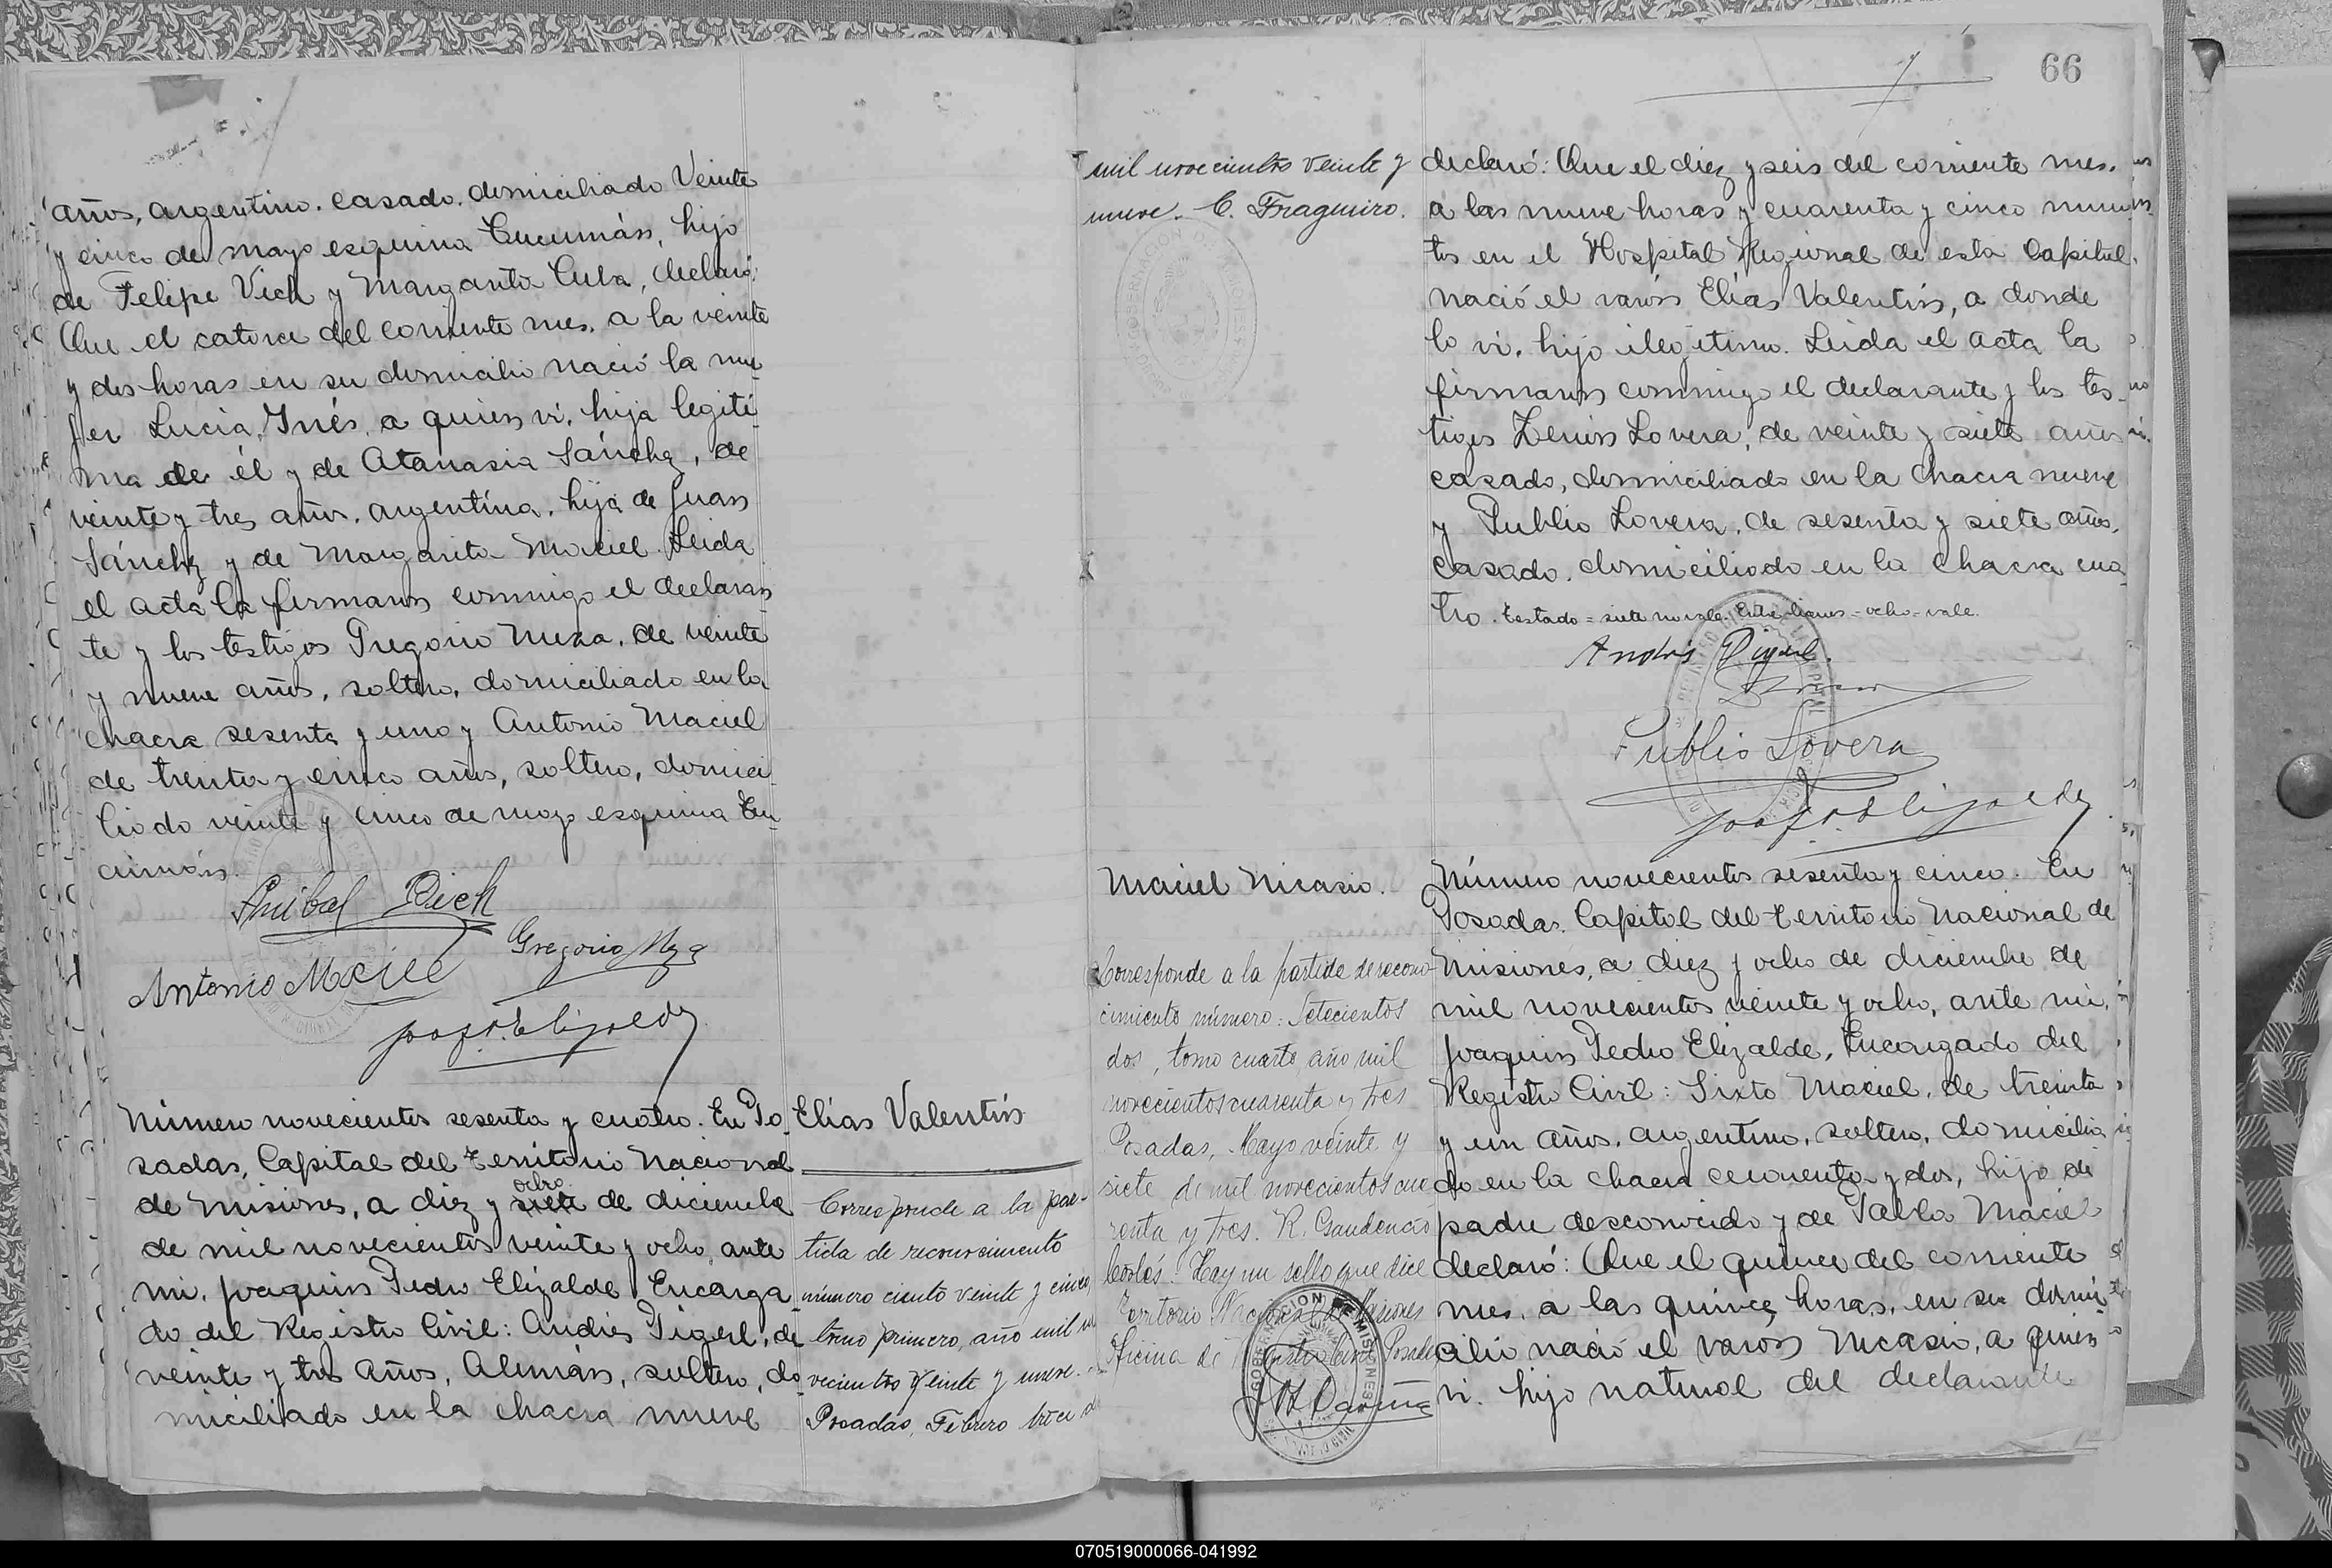 años, argentino, casado, domiciliado Veinte
y cinco de mayo esquina Tucumán, hijo
de Felipe Vich y Margarita Cula, declaró:
Que el catorce del corriente mes, a la veinte
y dos horas en su domicilio nació la mu-
jer Lucía Inés, a quien vi, hija legíti-
ma de él y de Atanasia Sánchez, de
veinte y tres años, argentina, hija de Juan
Sánchez y de Margarita Maciel. Leida
el acta la firmaron conmigo el declaran-
te y los testigos Gregorio Meza, de veinte
y nueve años, soltero, domiciliado en la
chacra sesenta y uno y Antonio Maciel
de treinta y cinco años, soltero, domici-
liado veinte y cinco de mayo esquina Tu-
cumán.
Aníbal Vich
Gregorio Meza
Antonio Maciel
Joaq. P. Elizalde
Número novecientos sesenta y cuatro. En Po-
sadas, Capital del territorio Nacional
ocho
de Misiones, a diez y siete de diciembre
de mil novecientos veinte y ocho, ante
mi, Joaquín Pedro Elizalde, Encarga-
do del Registro Civil: Andrés Pigerl, de
veinte y tres años, Alemán, soltero, do-
miciliado en la chacra nueve
Elías Valentín
Corresponde a la par-
tida de reconocimiento
número ciento veinte y cinco,
tomo primero, año mil no-
vecientos veinte y nueve.
Posadas, Febrero trece de
66
mil novecientos veinte y
nueve. C. Fragueiro.
declaró: Que el diez y seis del corriente mes,
a las nueve horas y cuarenta y cinco minu-
tos en el Hospital Regional de esta Capital,
nació el varón Elías Valentín, a donde
lo vi, hijo ilegítimo. Leida el acta la
firmaron conmigo el declarante y los tes-
tigos Zenón Lovera, de veinte y siete años
casado, domiciliado en la chacra nueve
y Publio Lovera, de sesenta y siete años,
casado, domiciliado en la chacra cua-
tro. Testado = siete no vale. Entre líneas = ocho = vale.
Andrés Pigerl.
Publio Lovera
Joaq. P. Elizalde
Maciel Nicasio.
Corresponde a la partida de recono-
cimiento número: Setecientos
dos, tomo cuarto, año mil
novecientos cuarenta y tres
Posadas, Mayo veinte y
siete de mil novecientos cua-
renta y tres. R. Gaudencio
Cortés. Hay un sello que dice
Territorio Nacional de Misiones
Oficina de Registro Civil Posadas
GOBERNACION DE MISIONES
Número novecientos sesenta y cinco. En
Posadas, Capital del territorio Nacional de
Misiones, a diez y ocho de diciembre de
mil novecientos veinte y ocho, ante mi,
Joaquín Pedro Elizalde, Encargado del
Registro Civil: Sixto Maciel, de treinta
y un años, argentino, soltero, domicilia-
do en la chacra cincuenta y dos, hijo de
padre desconocido y de Pabla Maciel
declaró: Que el quince del corriente
mes, a las quince horas, en su domi-
cilio nació el varón Nicasio, a quien
vi, hijo natural del declarante
070519000066-041992